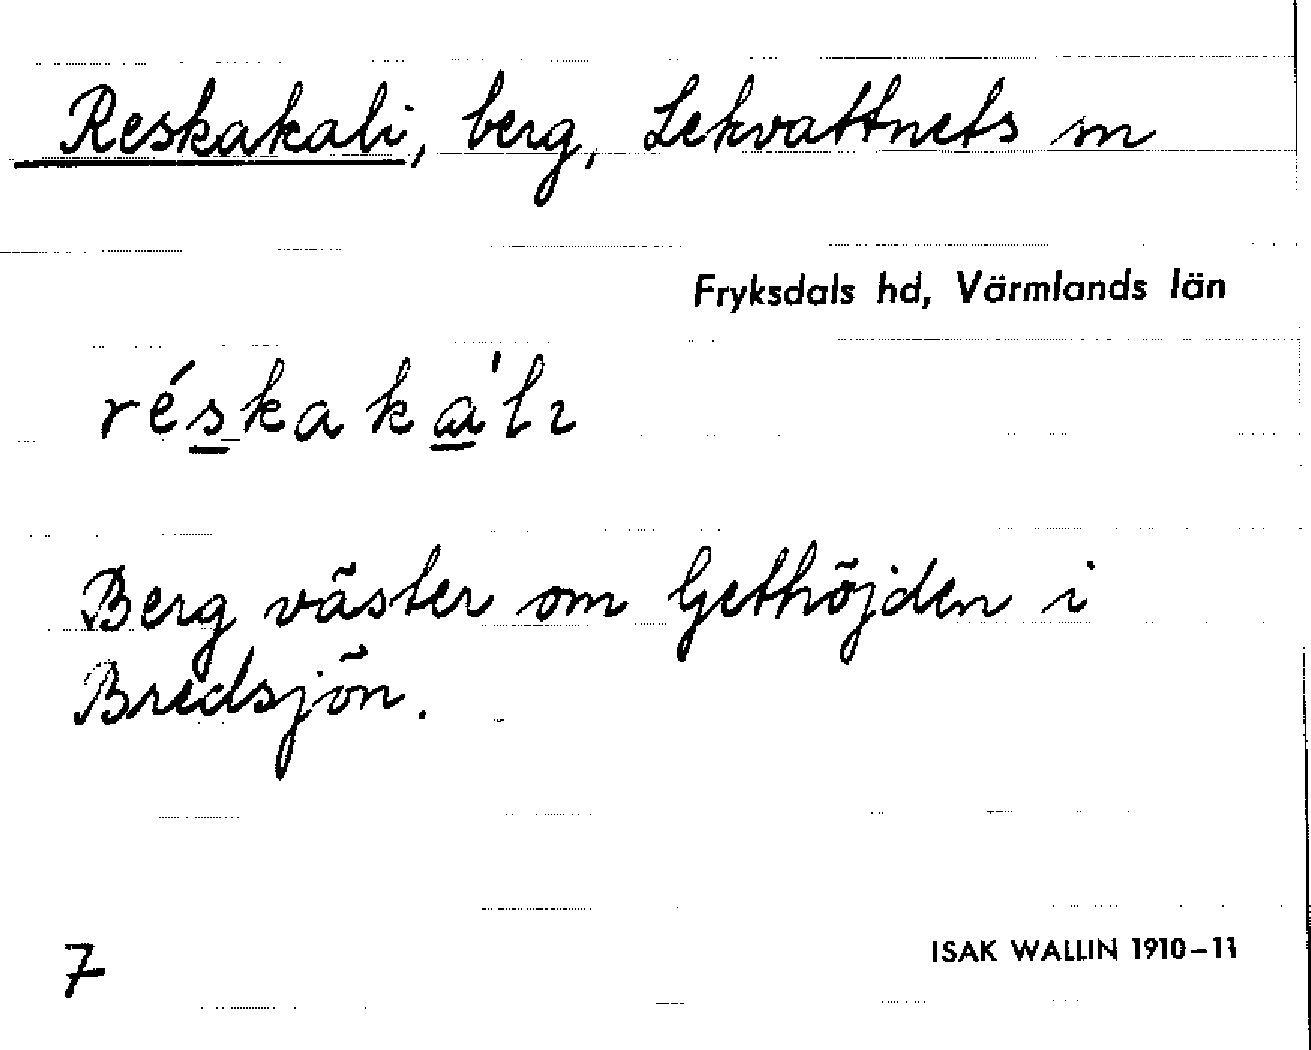 Reskakali, berg, Lekvattnets sn
Fryksdals hd, Värmlands län
réskaka'lı
Berg väster om Gethöjden i
Bredsjön.
7
ISAK WALLIN 1910–11